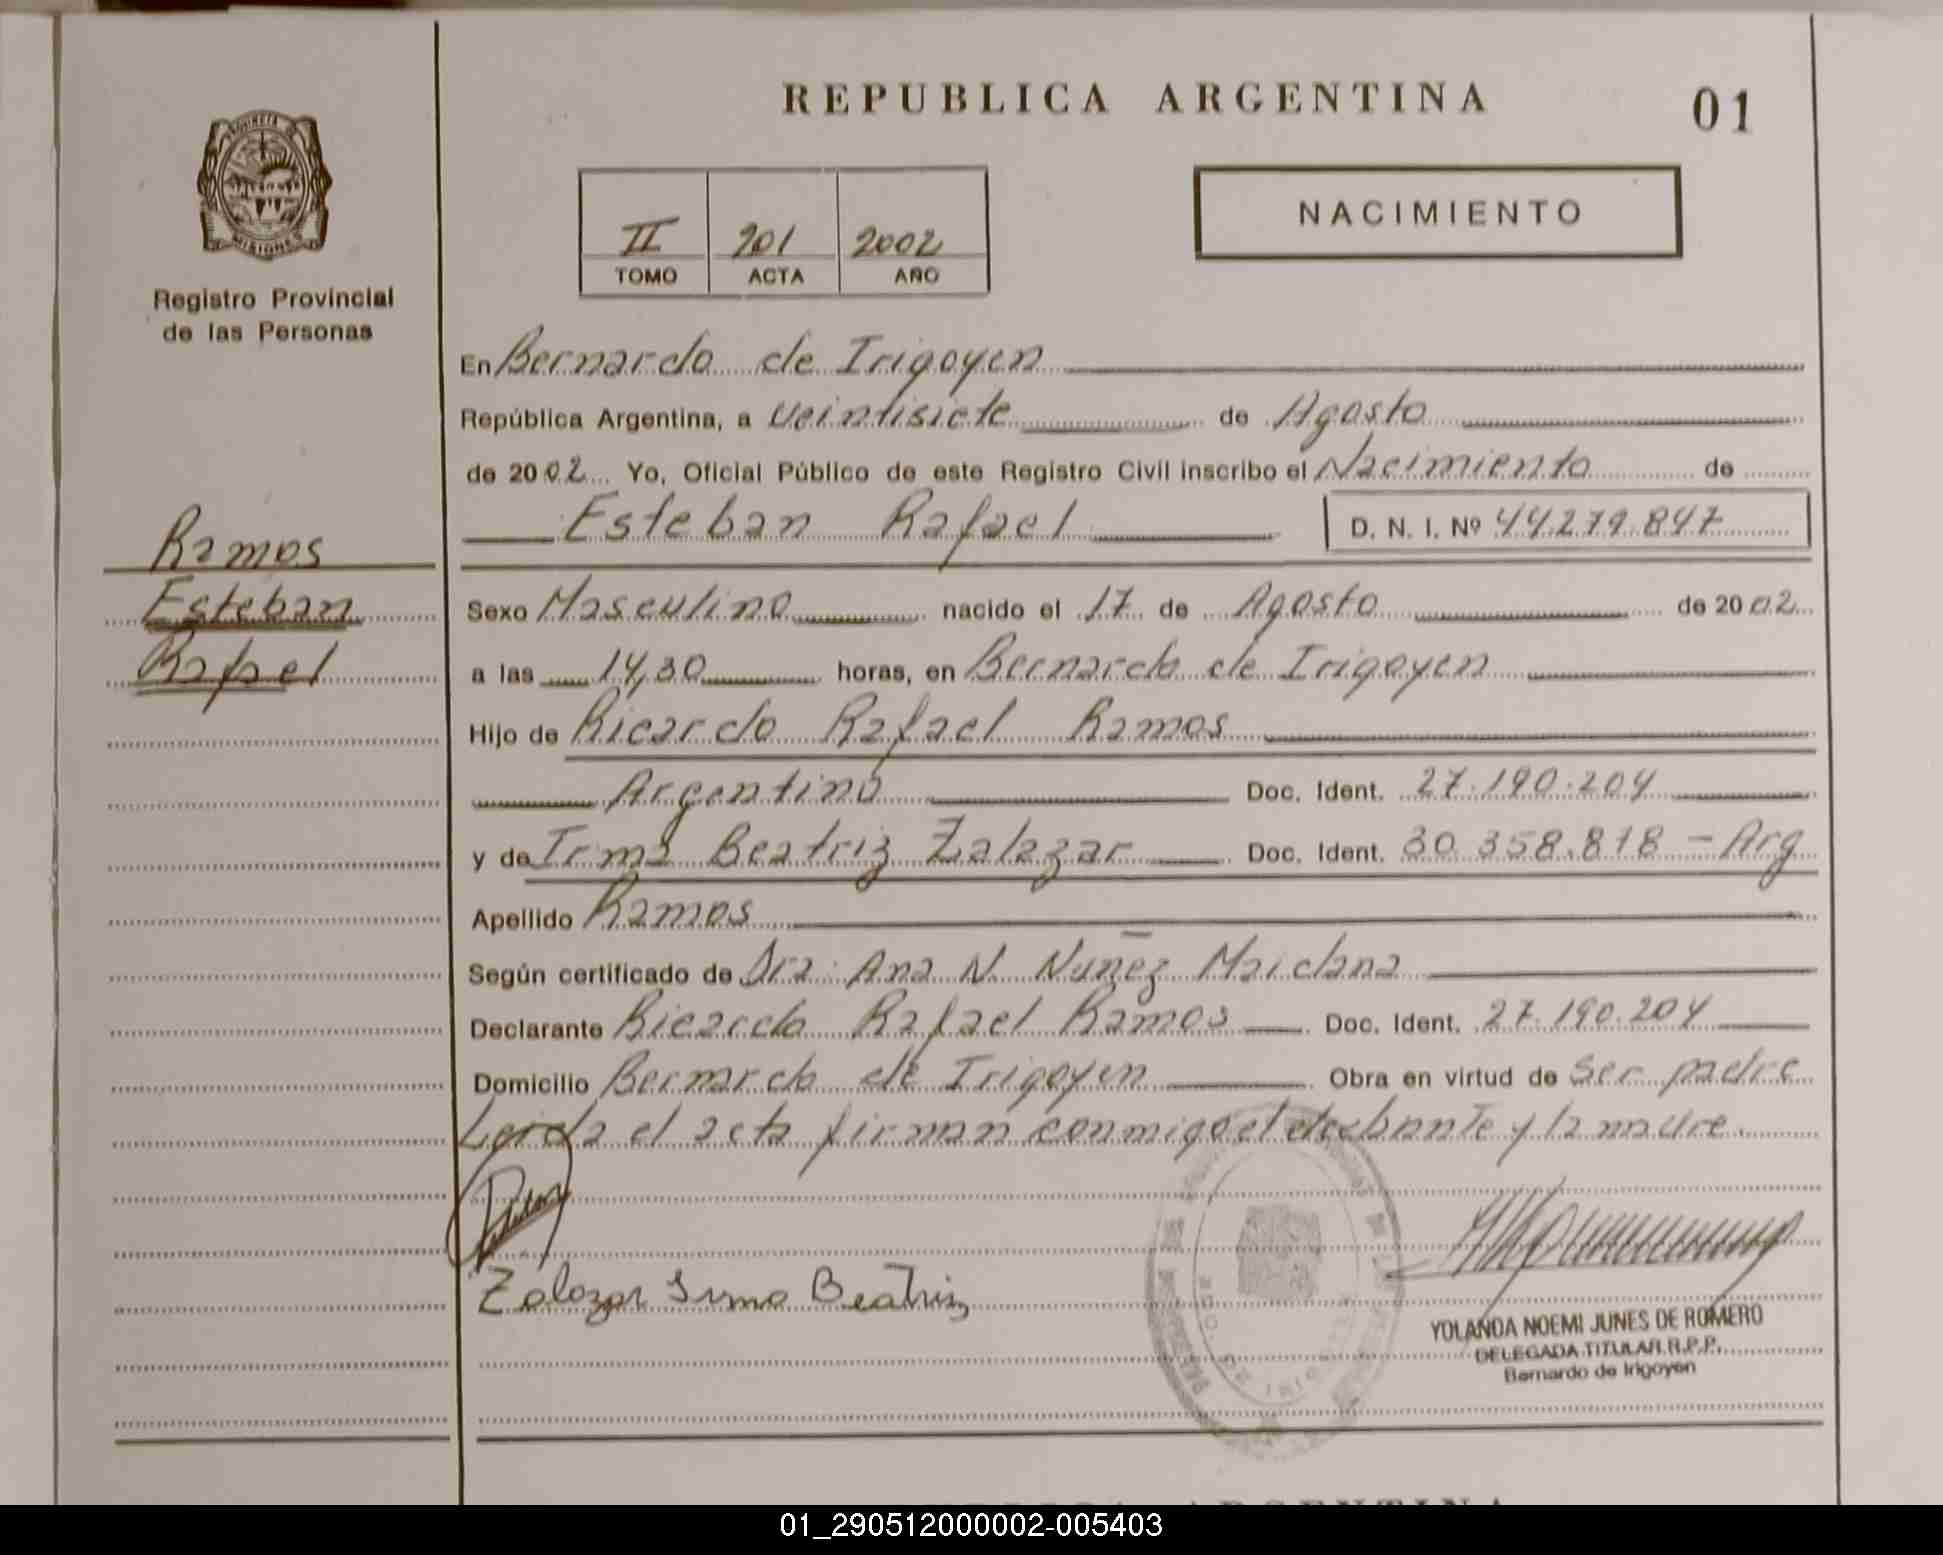 REPUBLICA ARGENTINA
01
PROVINCIA DE
MISIONES
Registro Provincial
de las Personas
II 201 2002
TOMO ACTA AÑO
NACIMIENTO
En Bernardo de Irigoyen
República Argentina, a veintisiete de Agosto
de 2002 Yo, Oficial Público de este Registro Civil inscribo el Nacimiento de
Esteban Rafael D. N. I. Nº 44.279.847
Ramos
Esteban
Rafael
Sexo Masculino nacido el 17 de Agosto de 2002
a las 14,30 horas, en Bernardo de Irigoyen
Hijo de Ricardo Rafael Ramos
Argentino Doc. Ident. 27.190.204
y de Irma Beatriz Zalazar Doc. Ident. 30.358.878 - Arg
Apellido Ramos
Según certificado de Dra. Ana N. Nuñez Maidana
Declarante Ricardo Rafael Ramos Doc. Ident. 27.190.204
Domicilio Bernardo de Irigoyen Obra en virtud de ser padre
Leida el acta firman conmigo el declarante y la madre.
Zalazar Irma Beatriz
YOLANDA NOEMI JUNES DE ROMERO
DELEGADA TITULAR R.P.P.
Bernardo de Irigoyen
01_290512000002-005403